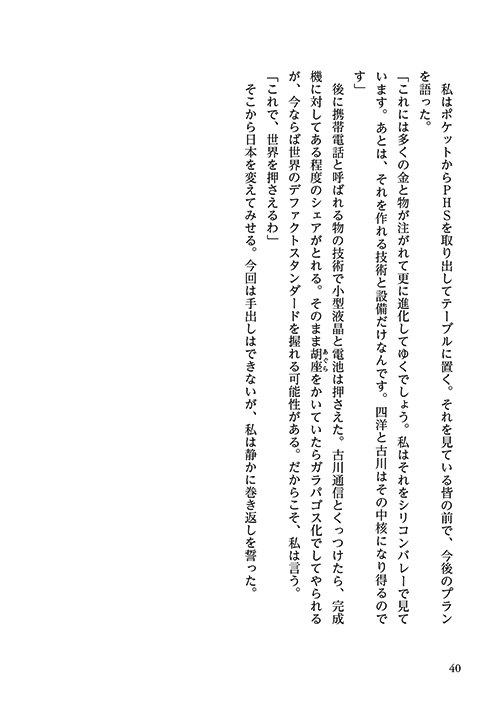 私はポケットからＰＨＳを取り出してテーブルに置く。それを見ている皆の前で、今後のプラン
を語った。
「これには多くの金と物が注がれて更に進化してゆくでしょう。私はそれをシリコンバレーで見て
います。あとは、それを作れる技術と設備だけなんです。四洋と古川はその中核になり得るので
す」
　後に携帯電話と呼ばれる物の技術で小型液晶と電池は押さえた。古川通信とくっつけたら、完成
機に対してある程度のシェアがとれる。そのまま胡座あぐらをかいていたらガラパゴス化でしてやられる
が、今ならば世界のデファクトスタンダードを握れる可能性がある。だからこそ、私は言う。
「これで、世界を押さえるわ」
　そこから日本を変えてみせる。今回は手出しはできないが、私は静かに巻き返しを誓った。
40